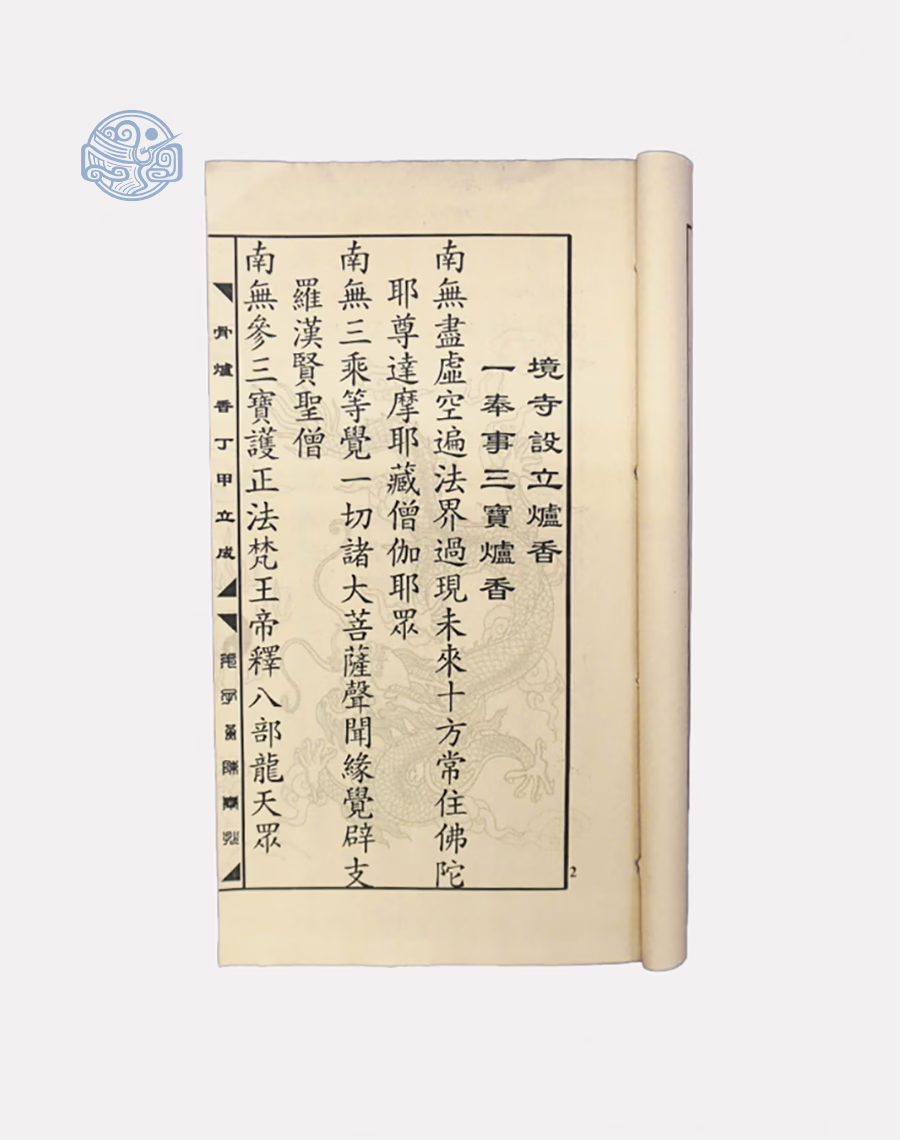 境寺設立爐香
一奉事三寶爐香
南無盡虛空遍法界過現未來十方常住佛陀
耶尊達摩耶藏僧伽耶眾
南無三乘等覺一切諸大菩薩聲聞緣覺辟支
羅漢賢聖僧
南無參三寶護正法梵王帝釋八部龍天眾
骨爐香丁甲立成
2